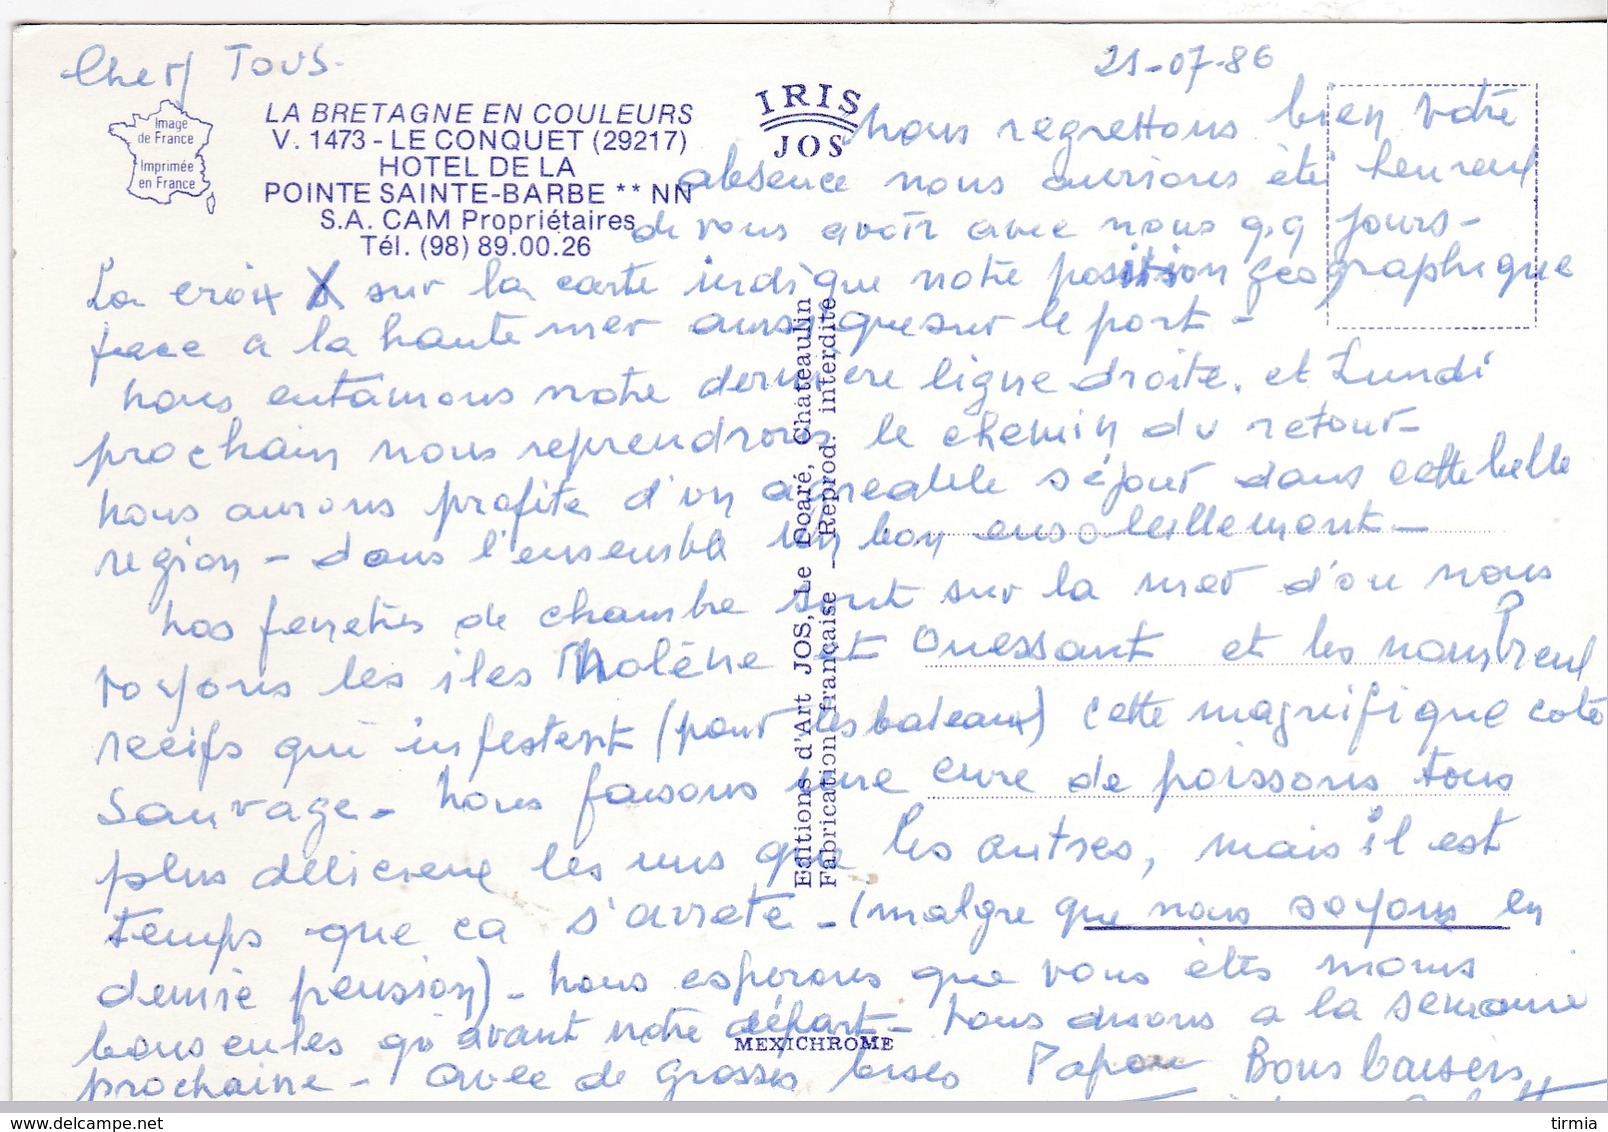 Chers Tous.
21-07-86
Image
de France
Imprimée
en France
LA BRETAGNE EN COULEURS
V. 1473 - LE CONQUET (29217)
HOTEL DE LA
POINTE SAINTE-BARBE ** NN
S.A. CAM Propriétaires
Tél. (98) 89.00.26
IRIS
JOS
Nous regrettons bien votre
absence nous aurions été heureux
de vous avoir avec nous q.q jours-
La croix X sur la carte indique notre position géographique
face a la haute mer aussi que sur le port -
nous entamons notre dernière ligne droite. et Lundi
prochain nous reprendrons le chemin du retour-
nous aurons profité d'un agreable séjour dans cette belle
region - dans l'ensemble un bon ensoleillement -
nos fenetres de chambre sont sur la mer d'ou nous
voyons les iles Molène et Ouessant et les nombreux
recifs qui infestent (pour les bateaux) cette magnifique cote
Sauvage - nous faisons une cure de poissons tous
plus délicieux les uns que les autres, mais il est
temps que ca s'arrete - (malgre que nous soyons en
demie pension) - nous esperons que vous étes moins
bousculés qu'avant notre départ - nous disons a la semaine
prochaine - avec de grosses bises Papou Bons baisers
Editions d'Art JOS, Le Doaré, Chateaulin
Fabrication française - Reprod. interdite
MEXICHROME
www.delcampe.net
tirmia